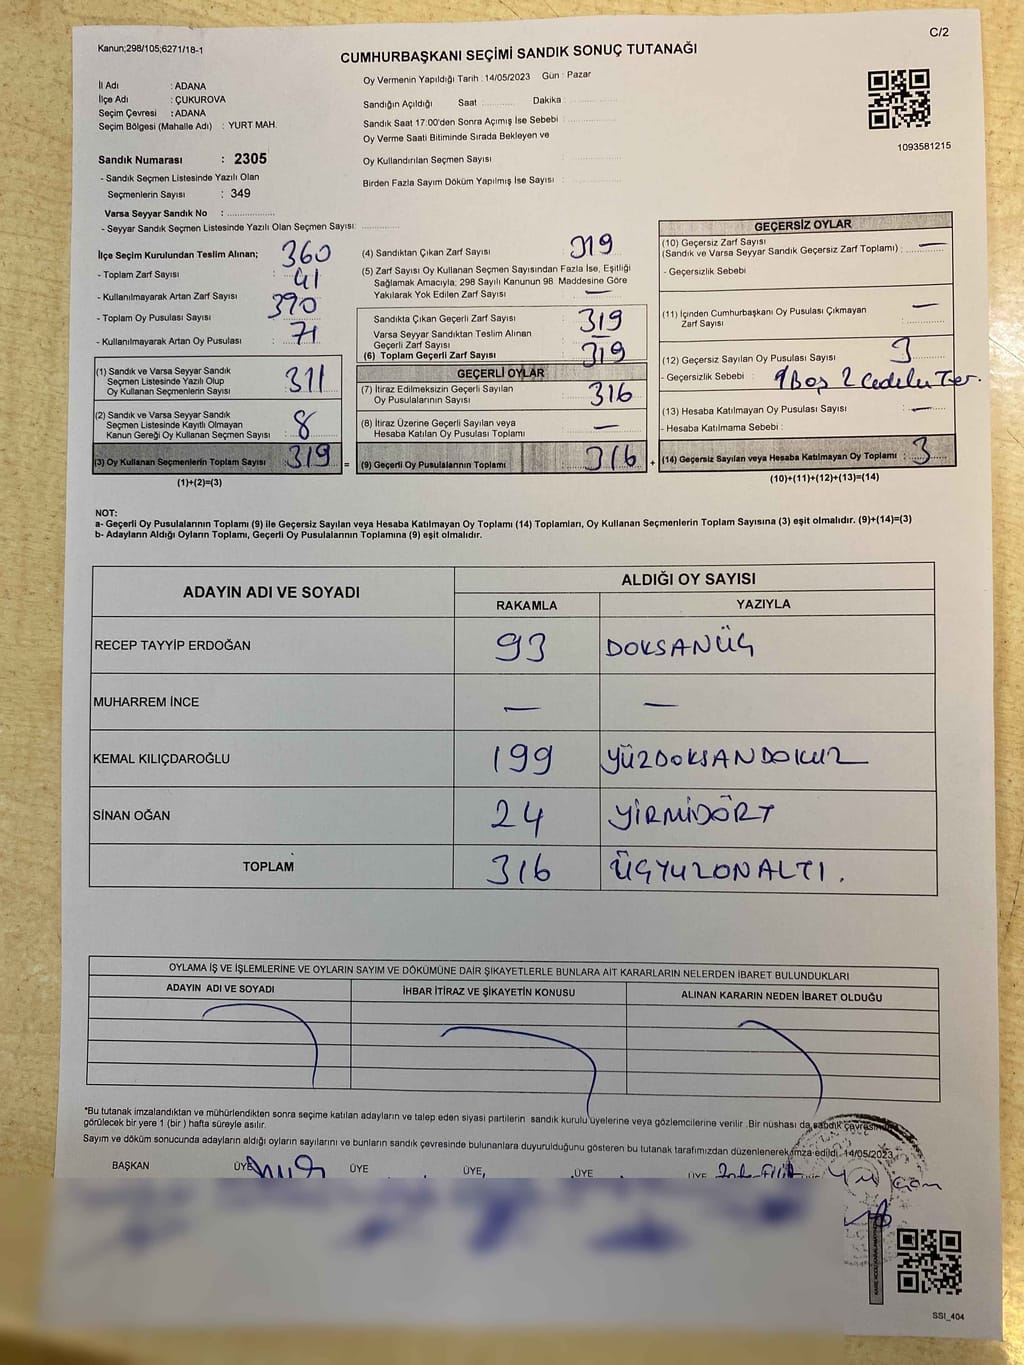 Kanun;298/105;6271/18-1
C/2
CUMHURBAŞKANI SEÇİMİ SANDIK SONUÇ TUTANAĞI
İl Adı : ADANA
İlçe Adı : ÇUKUROVA
Seçim Çevresi : ADANA
Seçim Bölgesi (Mahalle Adı) : YURT MAH.
Oy Vermenin Yapıldığı Tarih : 14/05/2023 Gün : Pazar
Sandığın Açıldığı Saat : Dakika :
Sandık Saat 17:00'den Sonra Açımış İse Sebebi :
Oy Verme Saati Bitiminde Sırada Bekleyen ve
Oy Kullandırılan Seçmen Sayısı :
Birden Fazla Sayım Döküm Yapılmış İse Sayısı :
1093581215
Sandık Numarası : 2305
- Sandık Seçmen Listesinde Yazılı Olan
Seçmenlerin Sayısı : 349
Varsa Seyyar Sandık No :
- Seyyar Sandık Seçmen Listesinde Yazılı Olan Seçmen Sayısı:
İlçe Seçim Kurulundan Teslim Alınan;
- Toplam Zarf Sayısı : 360
- Kullanılmayarak Artan Zarf Sayısı : 41
- Toplam Oy Pusulası Sayısı : 390
- Kullanılmayarak Artan Oy Pusulası : 71
(1) Sandık ve Varsa Seyyar Sandık
Seçmen Listesinde Yazılı Olup
Oy Kullanan Seçmenlerin Sayısı : 311
(2) Sandık ve Varsa Seyyar Sandık
Seçmen Listesinde Kayıtlı Olmayan
Kanun Gereği Oy Kullanan Seçmen Sayısı : 8
(3) Oy Kullanan Seçmenlerin Toplam Sayısı : 319 =
(1)+(2)=(3)
(4) Sandıktan Çıkan Zarf Sayısı : 319
(5) Zarf Sayısı Oy Kullanan Seçmen Sayısından Fazla İse, Eşitliği
Sağlamak Amacıyla; 298 Sayılı Kanunun 98 Maddesine Göre
Yakılarak Yok Edilen Zarf Sayısı : —
Sandıkta Çıkan Geçerli Zarf Sayısı : 319
Varsa Seyyar Sandıktan Teslim Alınan
Geçerli Zarf Sayısı : —
(6) Toplam Geçerli Zarf Sayısı : 319
GEÇERLİ OYLAR
(7) İtiraz Edilmeksizin Geçerli Sayılan
Oy Pusulalarının Sayısı : 316
(8) İtiraz Üzerine Geçerli Sayılan veya
Hesaba Katılan Oy Pusulası Toplamı : —
(9) Geçerli Oy Pusulalarının Toplamı : 316 +
GEÇERSİZ OYLAR
(10) Geçersiz Zarf Sayısı
(Sandık ve Varsa Seyyar Sandık Geçersiz Zarf Toplamı) : —
- Geçersizlik Sebebi :
(11) İçinden Cumhurbaşkanı Oy Pusulası Çıkmayan
Zarf Sayısı : —
(12) Geçersiz Sayılan Oy Pusulası Sayısı : 3
- Geçersizlik Sebebi : 1 Boş 2
(13) Hesaba Katılmayan Oy Pusulası Sayısı : —
- Hesaba Katılmama Sebebi :
(14) Geçersiz Sayılan veya Hesaba Katılmayan Oy Toplamı : 3
(10)+(11)+(12)+(13)=(14)
NOT:
a- Geçerli Oy Pusulalarının Toplamı (9) ile Geçersiz Sayılan veya Hesaba Katılmayan Oy Toplamı (14) Toplamları, Oy Kullanan Seçmenlerin Toplam Sayısına (3) eşit olmalıdır. (9)+(14)=(3)
b- Adayların Aldığı Oyların Toplamı, Geçerli Oy Pusulalarının Toplamına (9) eşit olmalıdır.
ADAYIN ADI VE SOYADI
ALDIĞI OY SAYISI
RAKAMLA YAZIYLA
RECEP TAYYİP ERDOĞAN 93 DOKSANÜÇ
MUHARREM İNCE — —
KEMAL KILIÇDAROĞLU 199 YÜZDOKSANDOKUZ
SİNAN OĞAN 24 YİRMİDÖRT
TOPLAM 316 ÜÇYUZONALTI.
OYLAMA İŞ VE İŞLEMLERİNE VE OYLARIN SAYIM VE DÖKÜMÜNE DAİR ŞİKAYETLERLE BUNLARA AİT KARARLARIN NELERDEN İBARET BULUNDUKLARI
ADAYIN ADI VE SOYADI İHBAR İTİRAZ VE ŞİKAYETİN KONUSU ALINAN KARARIN NEDEN İBARET OLDUĞU
*Bu tutanak imzalandıktan ve mühürlendikten sonra seçime katılan adayların ve talep eden siyasi partilerin sandık kurulu üyelerine veya gözlemcilerine verilir .Bir nüshası da sandık çevresinde
görülecek bir yere 1 (bir ) hafta süreyle asılır.
Sayım ve döküm sonucunda adayların aldığı oyların sayılarını ve bunların sandık çevresinde bulunanlara duyurulduğunu gösteren bu tutanak tarafımızdan düzenlenerek imza edildi. 14/05/2023
BAŞKAN ÜYE ÜYE ÜYE, ÜYE ÜYE
SSI_404